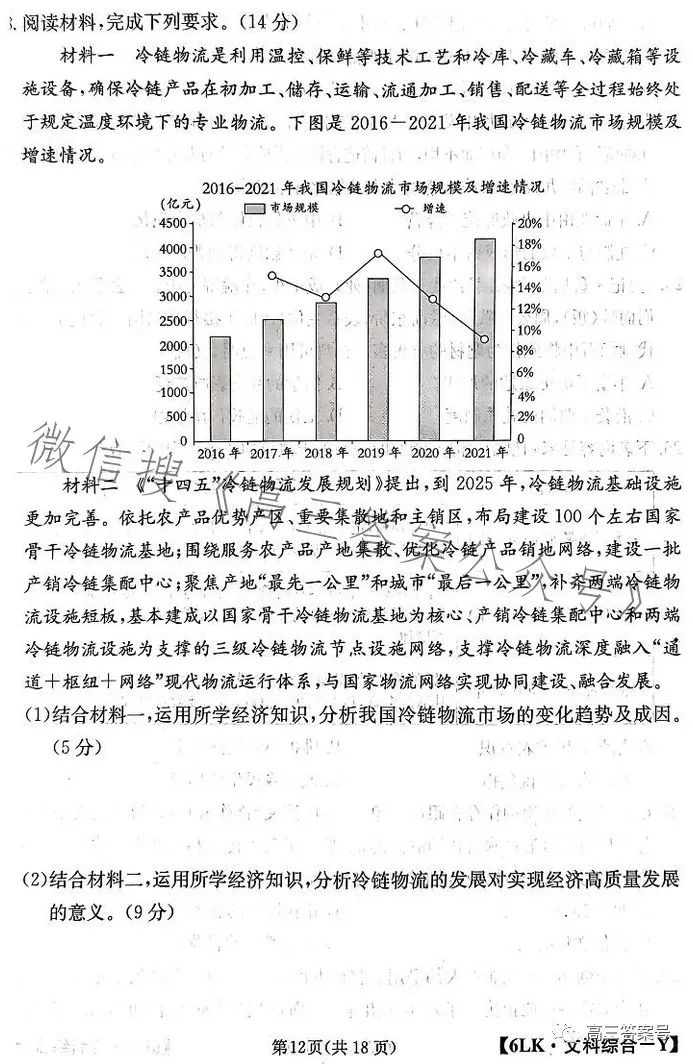 3.阅读材料,完成下列要求。(14分)
材料一 冷链物流是利用温控、保鲜等技术工艺和冷库、冷藏车、冷藏箱等设
施设备,确保冷链产品在初加工、储存、运输、流通加工、销售、配送等全过程始终处
于规定温度环境下的专业物流。下图是2016—2021年我国冷链物流市场规模及
增速情况。
2016-2021年我国冷链物流市场规模及增速情况
(亿元) 市场规模 增速
4500 20%
4000 18%
3500 16%
3000 14%
2500 12%
2000 10%
1500 8%
1000 6%
500 4%
0 2%
0
2016年 2017年 2018年 2019年 2020年 2021年
材料二 《“十四五”冷链物流发展规划》提出,到2025年,冷链物流基础设施
更加完善。依托农产品优势产区、重要集散地和主销区,布局建设100个左右国家
骨干冷链物流基地;围绕服务农产品产地集散、优化冷链产品销地网络,建设一批
产销冷链集配中心;聚焦产地“最先一公里”和城市“最后一公里”,补齐两端冷链物
流设施短板,基本建成以国家骨干冷链物流基地为核心、产销冷链集配中心和两端
冷链物流设施为支撑的三级冷链物流节点设施网络,支撑冷链物流深度融入“通
道+枢纽+网络”现代物流运行体系,与国家物流网络实现协同建设、融合发展。
(1)结合材料一,运用所学经济知识,分析我国冷链物流市场的变化趋势及成因。
(5分)
(2)结合材料二,运用所学经济知识,分析冷链物流的发展对实现经济高质量发展
的意义。(9分)
微信搜《高三答案公众号》
高三答案号
第12页(共18页)
【6LK·文科综合—Y】